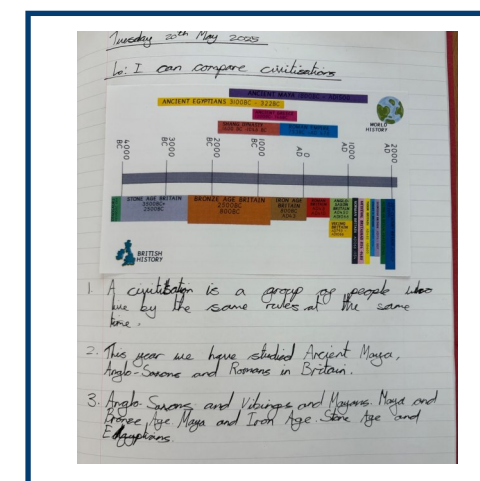 Tuesday 20th May 2025
Lo: I can compare civilisations
ANCIENT MAYA
ANCIENT EGYPTIANS 3100BC - 332BC
SHANG DYNASTY
WORLD
HISTORY
4000
BC
3000
BC
2000
BC
1000
BC
AD
0
1000
AD
2000
AD
STONE AGE BRITAIN
2500BC
BRONZE AGE BRITAIN
2500BC
800BC
IRON AGE
BRITAIN
800BC
ANGLO
SAXON
BRITAIN
VIKING
BRITAIN
BRITISH
HISTORY
1. A civilisation is a group of people who
live by the same rules at the same
time.
2. This year we have studied Ancient Maya,
Anglo-Saxons and Romans in Britain.
3. Anglo-Saxons and Vikings and Mayans. Maya and
Bronze Age. Maya and Iron Age. Stone Age and